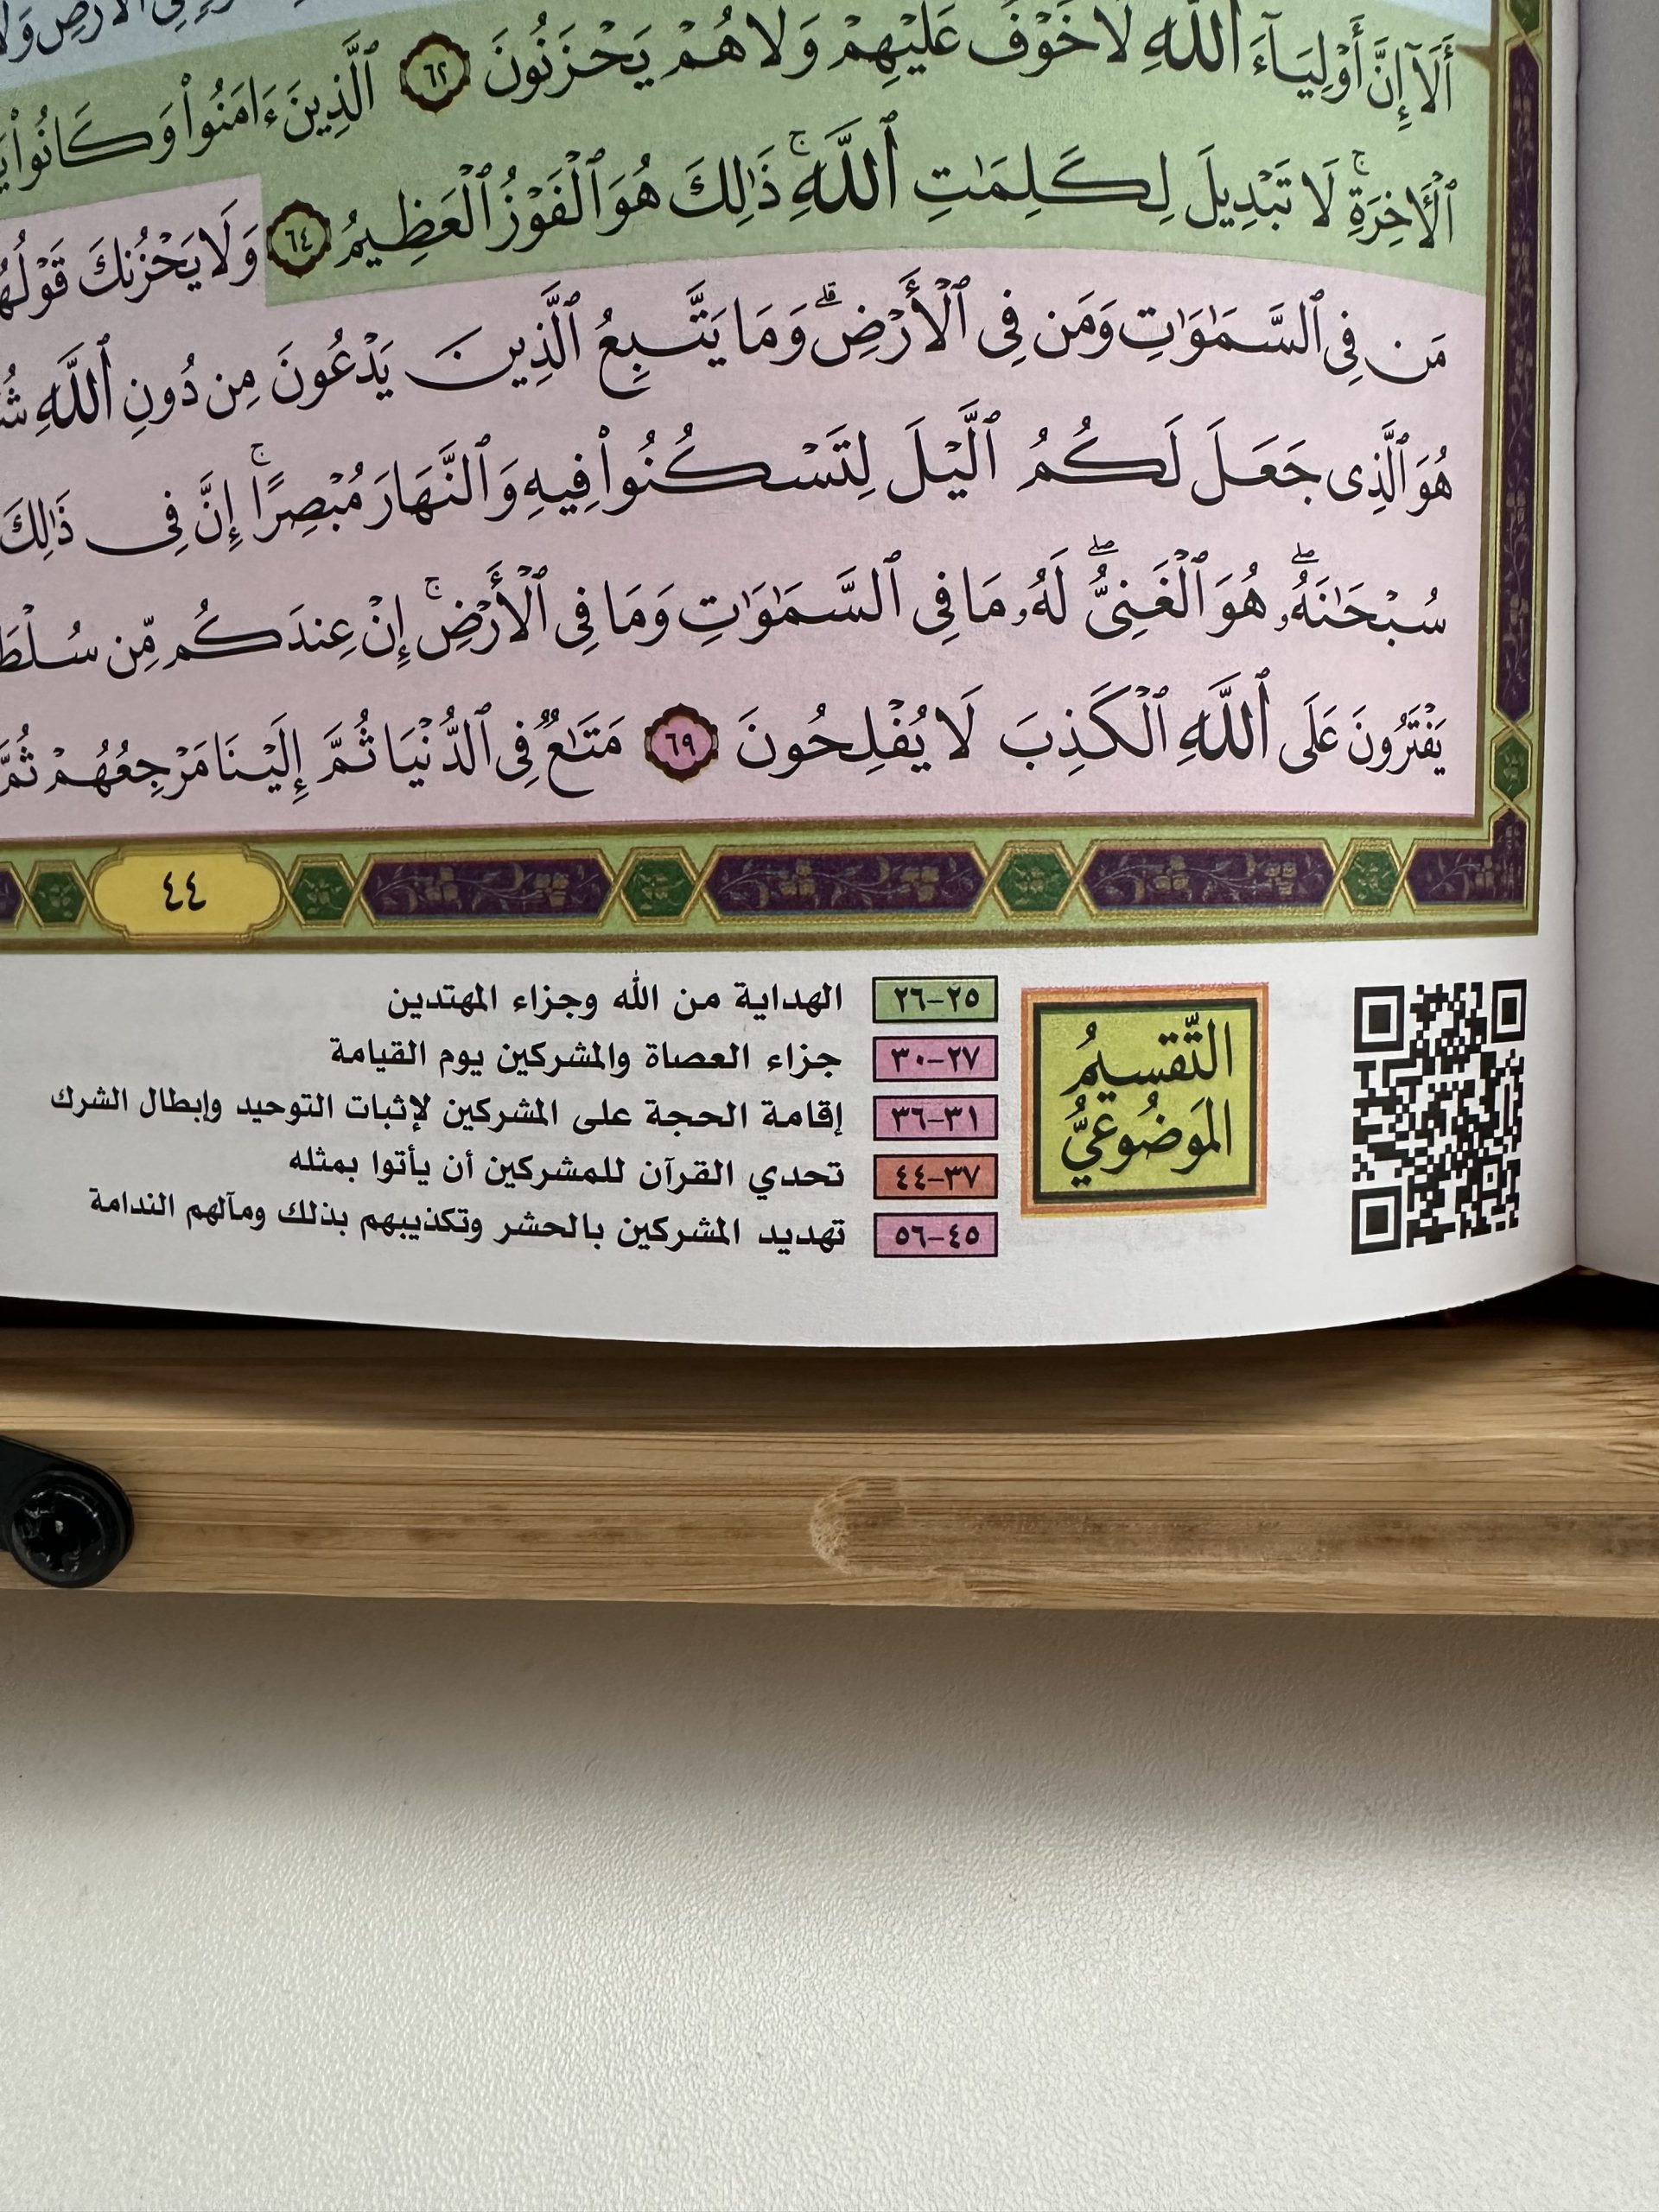 أَلَآ إِنَّ أَوْلِيَآءَ ٱللَّهِ لَا خَوْفٌ عَلَيْهِمْ وَلَا هُمْ يَحْزَنُونَ ٦٢ ٱلَّذِينَ ءَامَنُوا۟ وَكَانُوا۟
ٱلْأَخِرَةِ ۚ لَا تَبْدِيلَ لِكَلِمَٰتِ ٱللَّهِ ۚ ذَٰلِكَ هُوَ ٱلْفَوْزُ ٱلْعَظِيمُ ٦٤ وَلَا يَحْزُنكَ
مَن فِى ٱلسَّمَٰوَٰتِ وَمَن فِى ٱلْأَرْضِ ۗ وَمَا يَتَّبِعُ ٱلَّذِينَ يَدْعُونَ مِن دُونِ ٱللَّهِ
هُوَ ٱلَّذِى جَعَلَ لَكُمُ ٱلَّيْلَ لِتَسْكُنُوا۟ فِيهِ وَٱلنَّهَارَ مُبْصِرًا ۚ إِنَّ فِى ذَٰلِكَ
سُبْحَٰنَهُۥ ۖ هُوَ ٱلْغَنِىُّ ۖ لَهُۥ مَا فِى ٱلسَّمَٰوَٰتِ وَمَا فِى ٱلْأَرْضِ ۚ إِنْ عِندَكُم مِّن
يَفْتَرُونَ عَلَى ٱللَّهِ ٱلْكَذِبَ لَا يُفْلِحُونَ ٦٩ مَتَٰعٌ فِى ٱلدُّنْيَا ثُمَّ إِلَيْنَا مَرْجِعُهُمْ ثُمَّ
٤٤
التَّقسيمُ
المَوضُوعيُّ
٢٥-٢٦ الهداية من الله وجزاء المهتدين
٢٧-٣٠ جزاء العصاة والمشركين يوم القيامة
٣١-٣٦ إقامة الحجة على المشركين لإثبات التوحيد وإبطال الشرك
٣٧-٤٤ تحدي القرآن للمشركين أن يأتوا بمثله
٤٥-٥٦ تهديد المشركين بالحشر وتكذيبهم بذلك ومآلهم الندامة